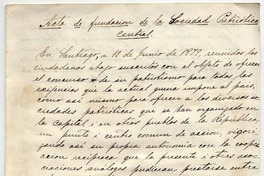 Acta de fundacion de la Sociedad Patriótica
central
En Santiago, a 18 de Junio de 1879, reunidos los
ciudadanos abajo suscritos con el objeto de ofrecer
el concurso de su patriotismo para todas las
exijencias que la actual guerra impone al pais,
como asi mismo para ofrecer a las diversas so-
ciedades patrióticas que se han organizado en
la Capital i en otros pueblos de la República,
un punto i centro comun de accion, vigori-
zando asi su propia autonomia con la coope-
racion reciproca que la presente i otras asoc-
iaciones análogas pudieran prestarse entre